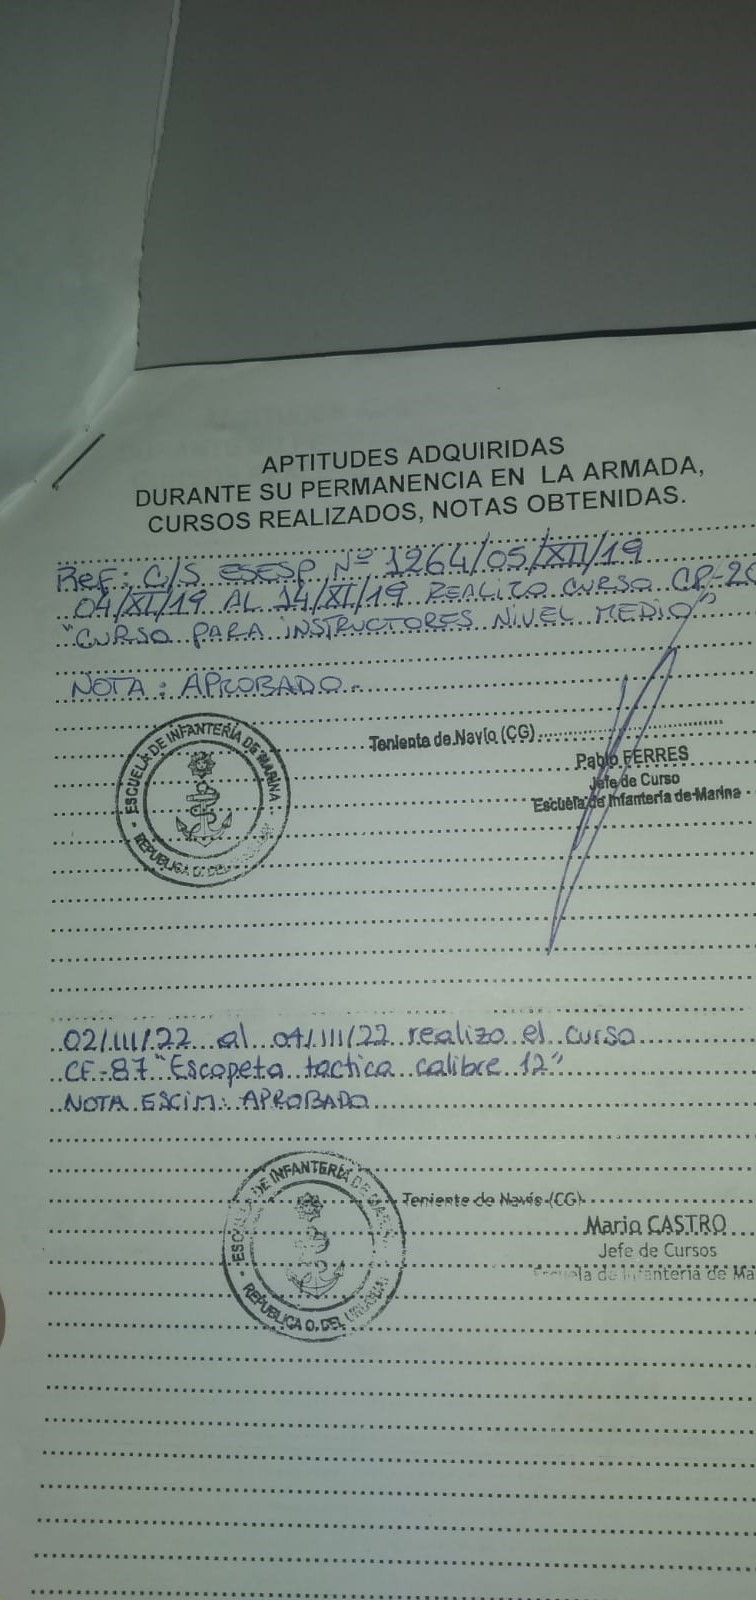 APTITUDES ADQUIRIDAS
DURANTE SU PERMANENCIA EN LA ARMADA,
CURSOS REALIZADOS, NOTAS OBTENIDAS.
Ref: C/S ESESP Nº 1264/05/XII/19
04/XI/19 AL 14/XI/19 REALIZO CURSO CP-20
"CURSO PARA INSTRUCTORES NIVEL MEDIO"
NOTA: APROBADO.
ESCUELA DE INFANTERÍA DE MARINA
REPUBLICA O. DEL
Teniente de Navío (CG)
Pablo FERRES
Jefe de Curso
Escuela de Infantería de Marina
02/III/22 al 04/III/22 realizo el curso
CF-87 "Escopeta tactica calibre 12"
NOTA ESCIM: APROBADO
ESCUELA DE INFANTERÍA DE MARINA
REPUBLICA O. DEL URUGUAY
Teniente de Navío (CG)
Mario CASTRO
Jefe de Cursos
Escuela de Infantería de Ma